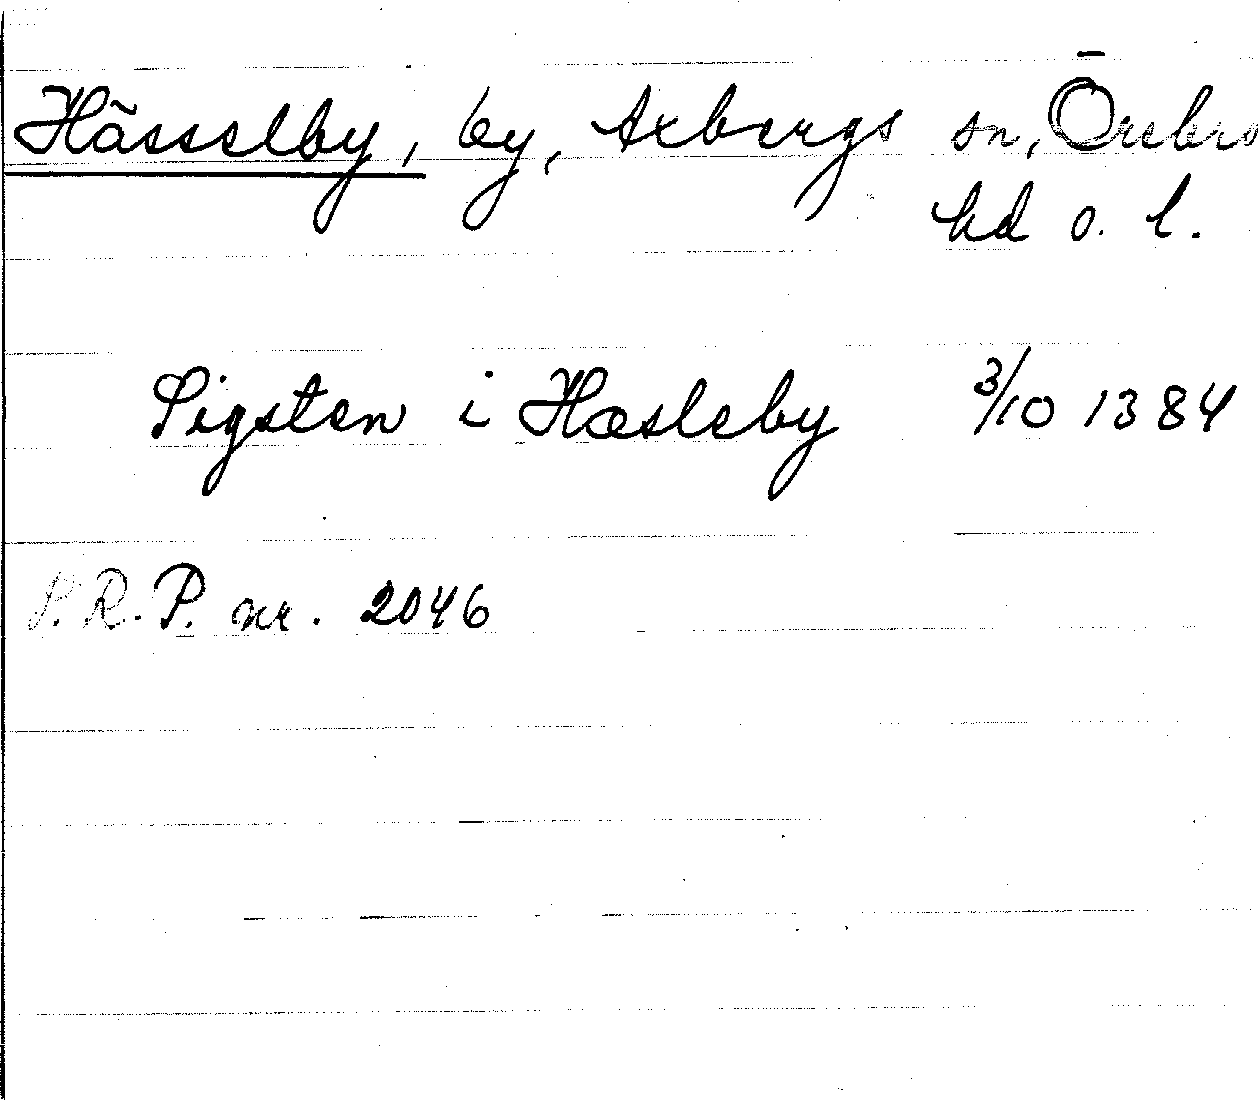 Hässelby, by, Axbergs sn, Örebro
hd o. l.
Sigsten i Hæsleby 3/10 1384
S.R.P. nr. 2046